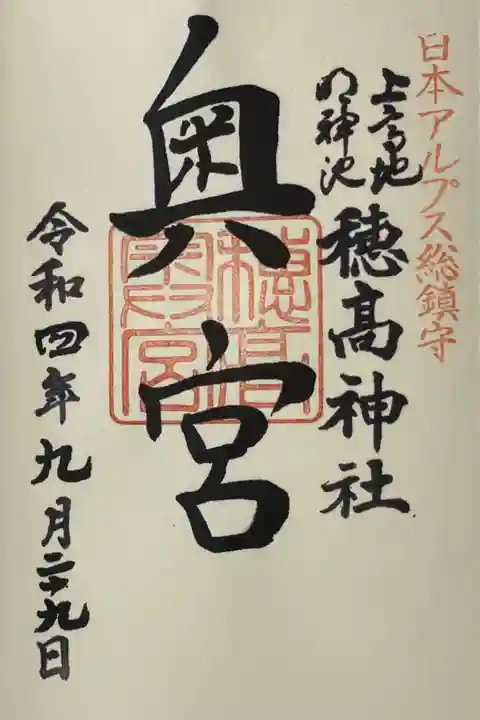 日本アルプス総鎮守
上高地
明神池
穂髙神社
奥宮
穂髙
奥宮
令和四年九月二十九日